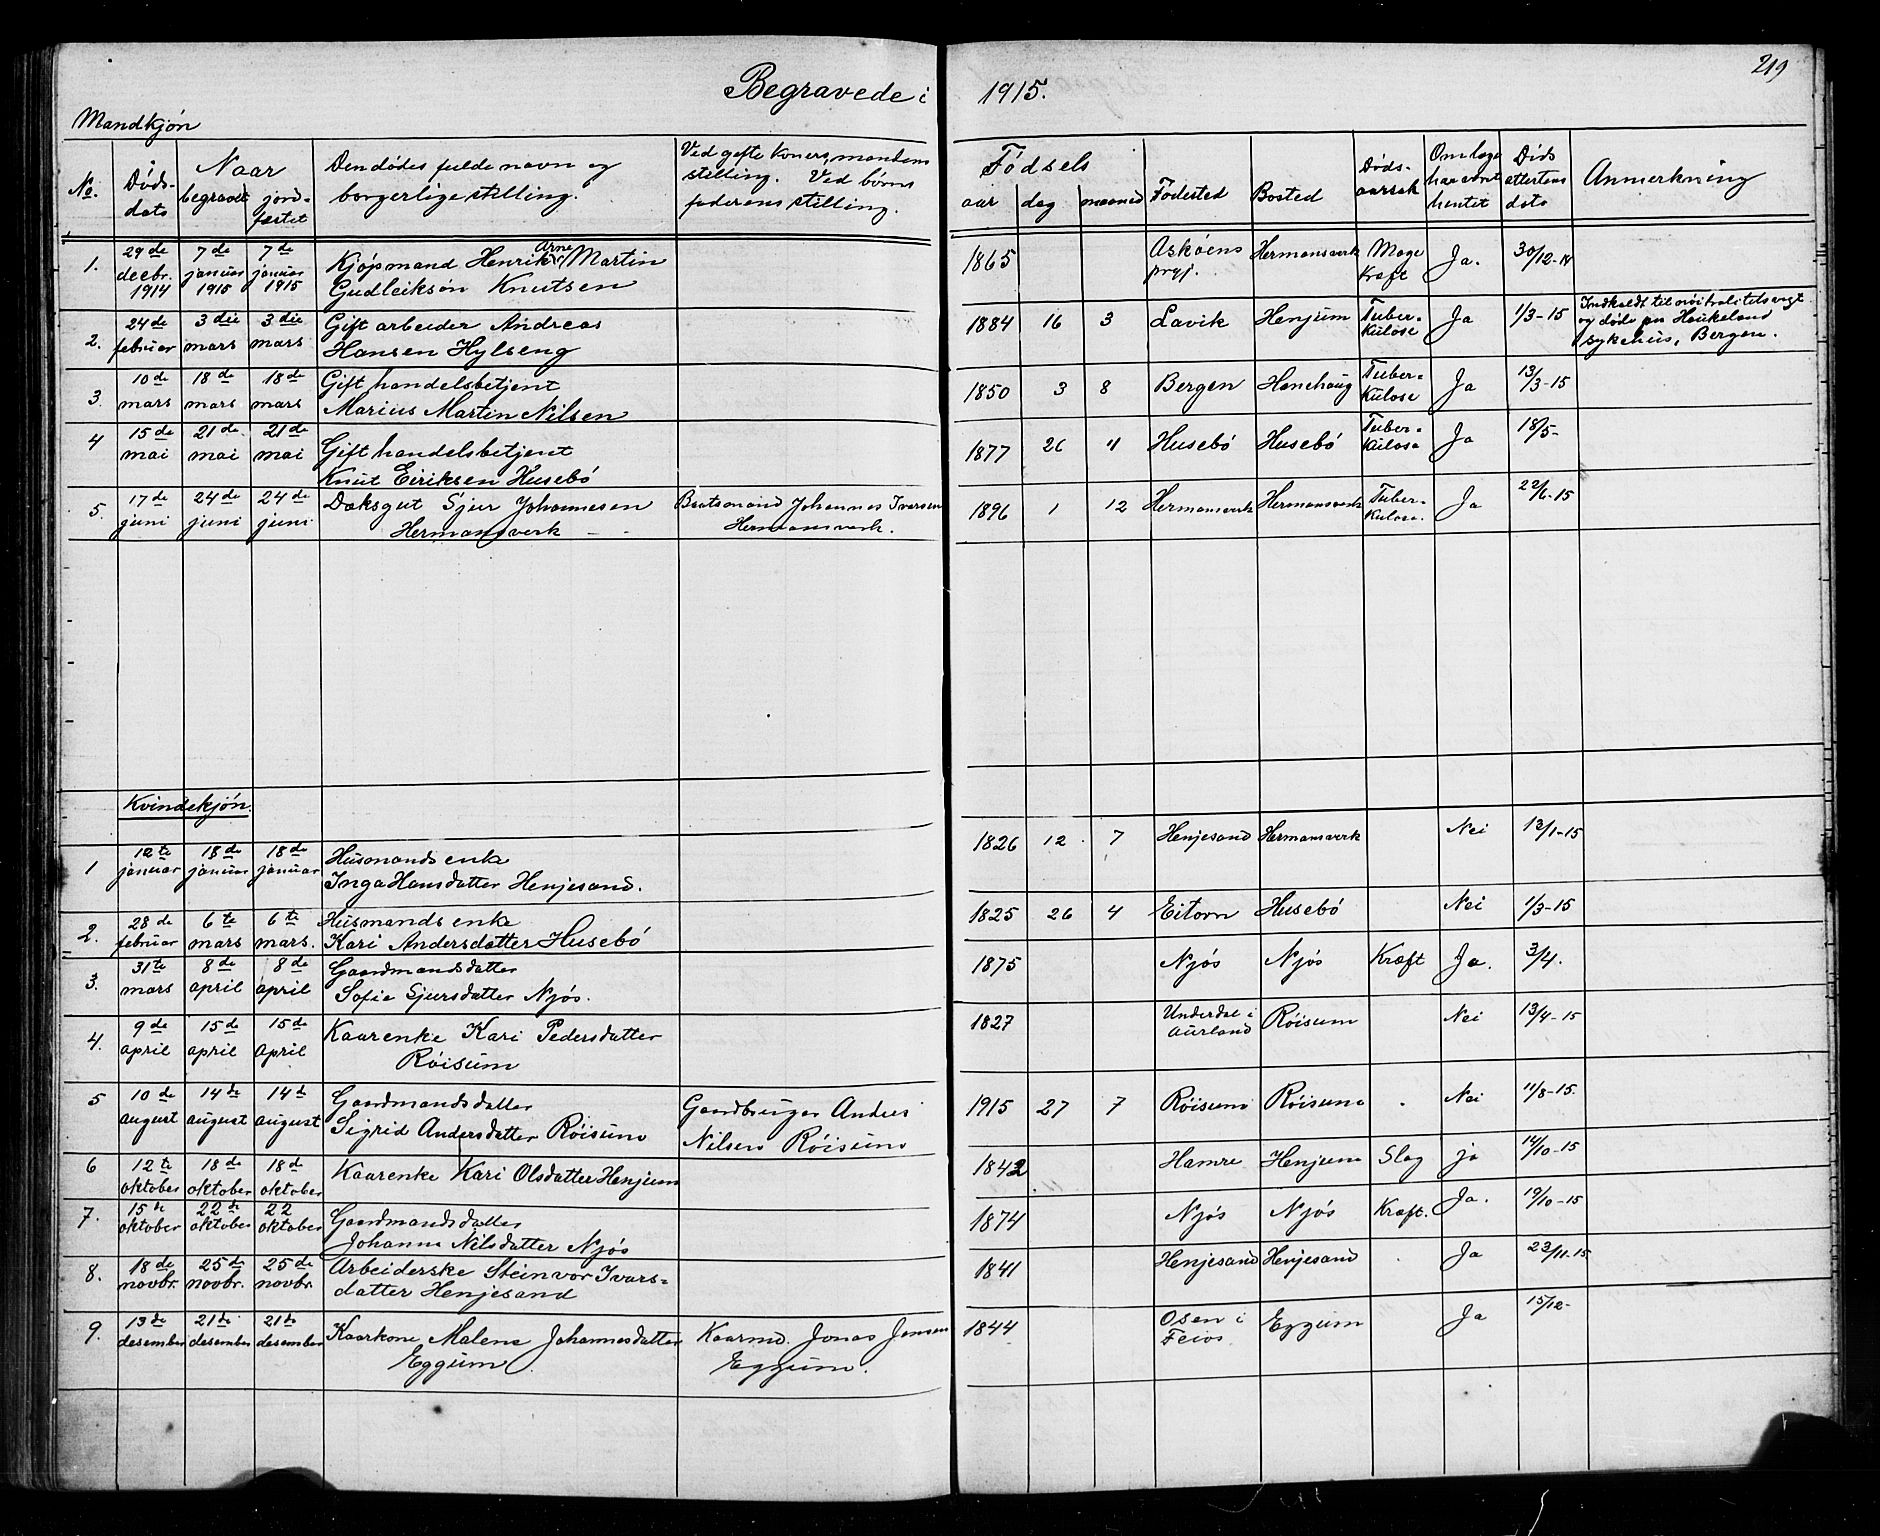 219
Begravede i 1915.
Mandkjøn
No. | Døds-dato | Naar begravet | jord-fæstet | Den dødes fulde navn og borgerlige stilling. | Ved gifte koners mandens stilling. Ved børns faderens stilling. | Fødsels aar | dag | maaned | Fødested | Bosted | Døds-aarsak | Om læge har været hentet | Døds attestens dato | Anmerkning
1. | 29de decbr. 1914 | 7de januar 1915 | 7de januar 1915 | Kjøpmand Henrik Arne Martin Gudleiksøn Knutsen | | 1865 | | | Askøens prgj. | Hermansverk | Mage kræft | Ja. | 30/12-14 |
2. | 24de februar | 3die mars | 3die mars | Gift arbeider Andreas Hansen Hylseng | | 1884 | 16 | 3 | Lavik | Henjum | Tuber-kulose | Ja | 1/3-15 | Indkaldt til nøitralitetsvagt og døde paa Haukeland sykehus, Bergen.
3. | 10de mars | 18de mars | 18de mars | Gift handelsbetjent Marius Martin Nilsen | | 1850 | 3 | 8 | Bergen | Hanehaug | Tuber-kulose | Ja | 13/3-15 |
4 | 15de mai | 21de mai | 21de mai | Gift handelsbetjent Knut Eiriksen Husebö | | 1877 | 26 | 4 | Husebö | Husebö | Tuber-kulose | Ja | 18/5- |
5. | 17de juni | 24de juni | 24de juni | Dæksgut Sjur Johannesen Hermansverk | Baatsmand Johannes Ivarsen Hermansverk. | 1896 | 1 | 12 | Hermansverk | Hermansverk | Tuber-kulose. | Ja | 22/6-15 |
Kvindekjøn.
1 | 12te januar | 18de januar | 18de januar | Husmands enke Inga Hansdatter Henjesand. | | 1826 | 12 | 7 | Henjesand | Hermansverk | | Nei | 12/1-15 |
2. | 28de februar | 6te mars | 6te mars. | Husmands enke Kari Andersdatter Husebö | | 1825 | 26 | 4 | Eitorn | Husebö | | Nei | 1/3-15 |
3. | 31te mars | 8de april | 8de april | Gaardmandsdatter Sofie Sjursdatter Njøs. | | 1875 | | | Njøs | Njøs | Kræft | Ja. | 3/4. |
4. | 9de april | 15de april | 15de april | Kaarenke Kari Pedersdatter Röisum | | 1827 | | | Underdal i Aurland | Röisum | | Nei | 13/4-15 |
5 | 10de august | 14de august | 14d august | Gaardmandsdatter Sigrid Andersdatter Röisum | Gaardbruger Anders Nilsen Röisum | 1915 | 27 | 7 | Röisum | Röisum | | Nei | 11/8-15. |
6 | 12te oktober | 18de oktober | 18d oktober | Kaarenke Kari Olsdatter Henjum | | 1842 | | | Hamre | Henjum | Slag | ja | 14/10-15 |
7. | 15de oktober | 22de oktober | 22 oktober | Gaardmandsdatter Johanne Nilsdatter Njøs | | 1874 | | | Njøs | Njøs | Kræft. | Ja. | 19/10-15 |
8. | 18de novbr. | 25de novbr. | 25de novbr. | Arbeiderske Steinvor Ivars-datter Henjesand | | 1841 | | | Henjesand | Henjesand | | Ja | 23/11-15 |
9. | 13de desember | 21de desember | 21de desember | Kaarkone Malene Johannesdatter Eggum | Kaarmd. Jonas Jensen Eggum. | 1844 | | | Osen i Feios | Eggum | | Ja | 15/12- |